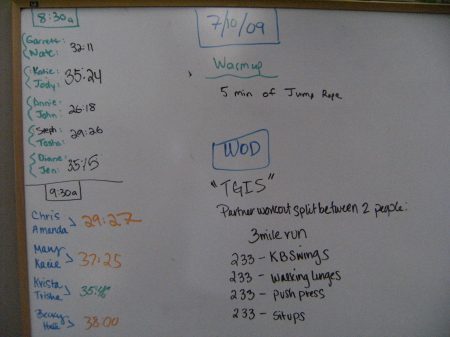 8:30a
Garrett:
Nate: 32:11
Katie:
Jody: 35:24
Annie:
John: 26:18
Steph:
Tosha: 29:26
Diane:
Jen: 35:15
9:30a
Chris
Amanda 29:27
Mary
Kacie 37:25
Krista
Trisha
Becky
38:00
7/10/09
Warmup
5 min of Jump Rope
WOD
"TGIS"
Partner workout split between 2 people:
3 mile run
233 - KB Swings
233 - walking lunges
233 - push press
233 - situps